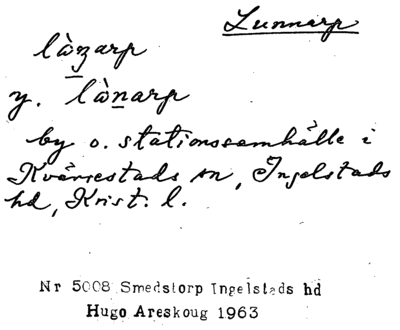 Lunnarp
làn̠arp
y. làn̲arp
by o. stationssamhälle i
Kvärrestads sn, Ingelstads
hd, Krist. l.
Nr 5008 Smedstorp Ingelstads hd
Hugo Areskoug 1963